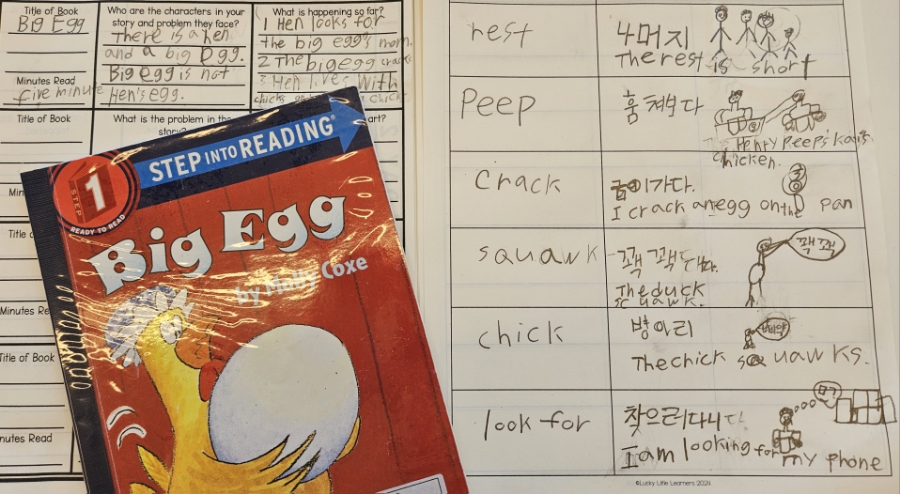 Title of Book
Big Egg
Minutes Read
five minute
Who are the characters in your
story and problem they face?
There is a hen
and a big egg.
Big egg is not
hen's egg.
What is happening so far?
1 Hen looks for
the big egg's mom.
2 The big egg
3 Hen lives with
chicks
Title of Book
What is the problem in the
story?
Title of Book
Minutes Re
Title of Book
nutes Read
STEP INTO READING®
STEP
1
READY TO READ
Big Egg
by Molly Coxe
rest
나머지
The rest is short
Peep
훔쳐보다
Henry Peeps
chicken.
Crack
금이가다.
I crack an egg on the pan
squawk
꽥꽥
꽥꽥
The duck
squawk.
chick
병아리
The chick squawks.
look for
찾으러다니다
I am looking for my phone
©Lucky Little Learners 2024